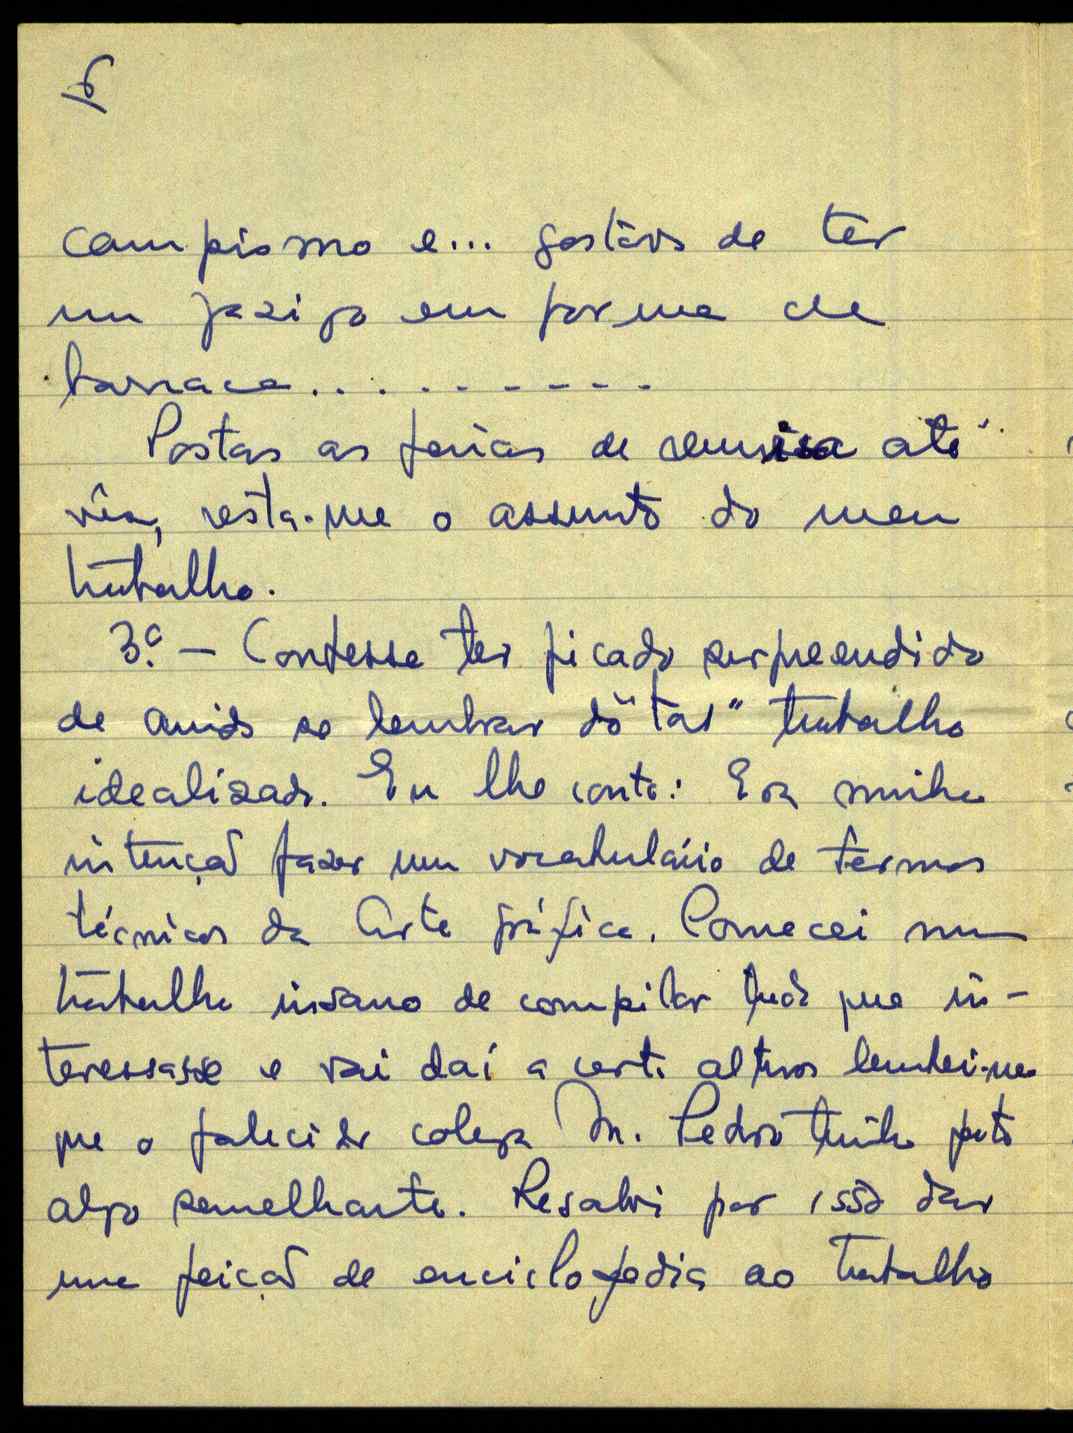 6
campismo e... gostava de ter
um jazigo em forma de
barraca.........
Postas as ferias de remissa até
vêr, resta-me o assunto do meu
trabalho.
3.º — Confesso ter ficado surpreendido
de ainda se lembrar do "tal" trabalho
idealizado. Eu lhe conto: Era minha
intenção fazer um vocabulário de termos
técnicos da Arte gráfica. Comecei num
trabalho insano de compilar tudo que in-
teressasse e vai daí a certa altura lembrei-me
que o falecido colega M. Pedro tinha feito
algo semelhante. Resolvi por isso dar
uma feição de enciclopedia ao trabalho